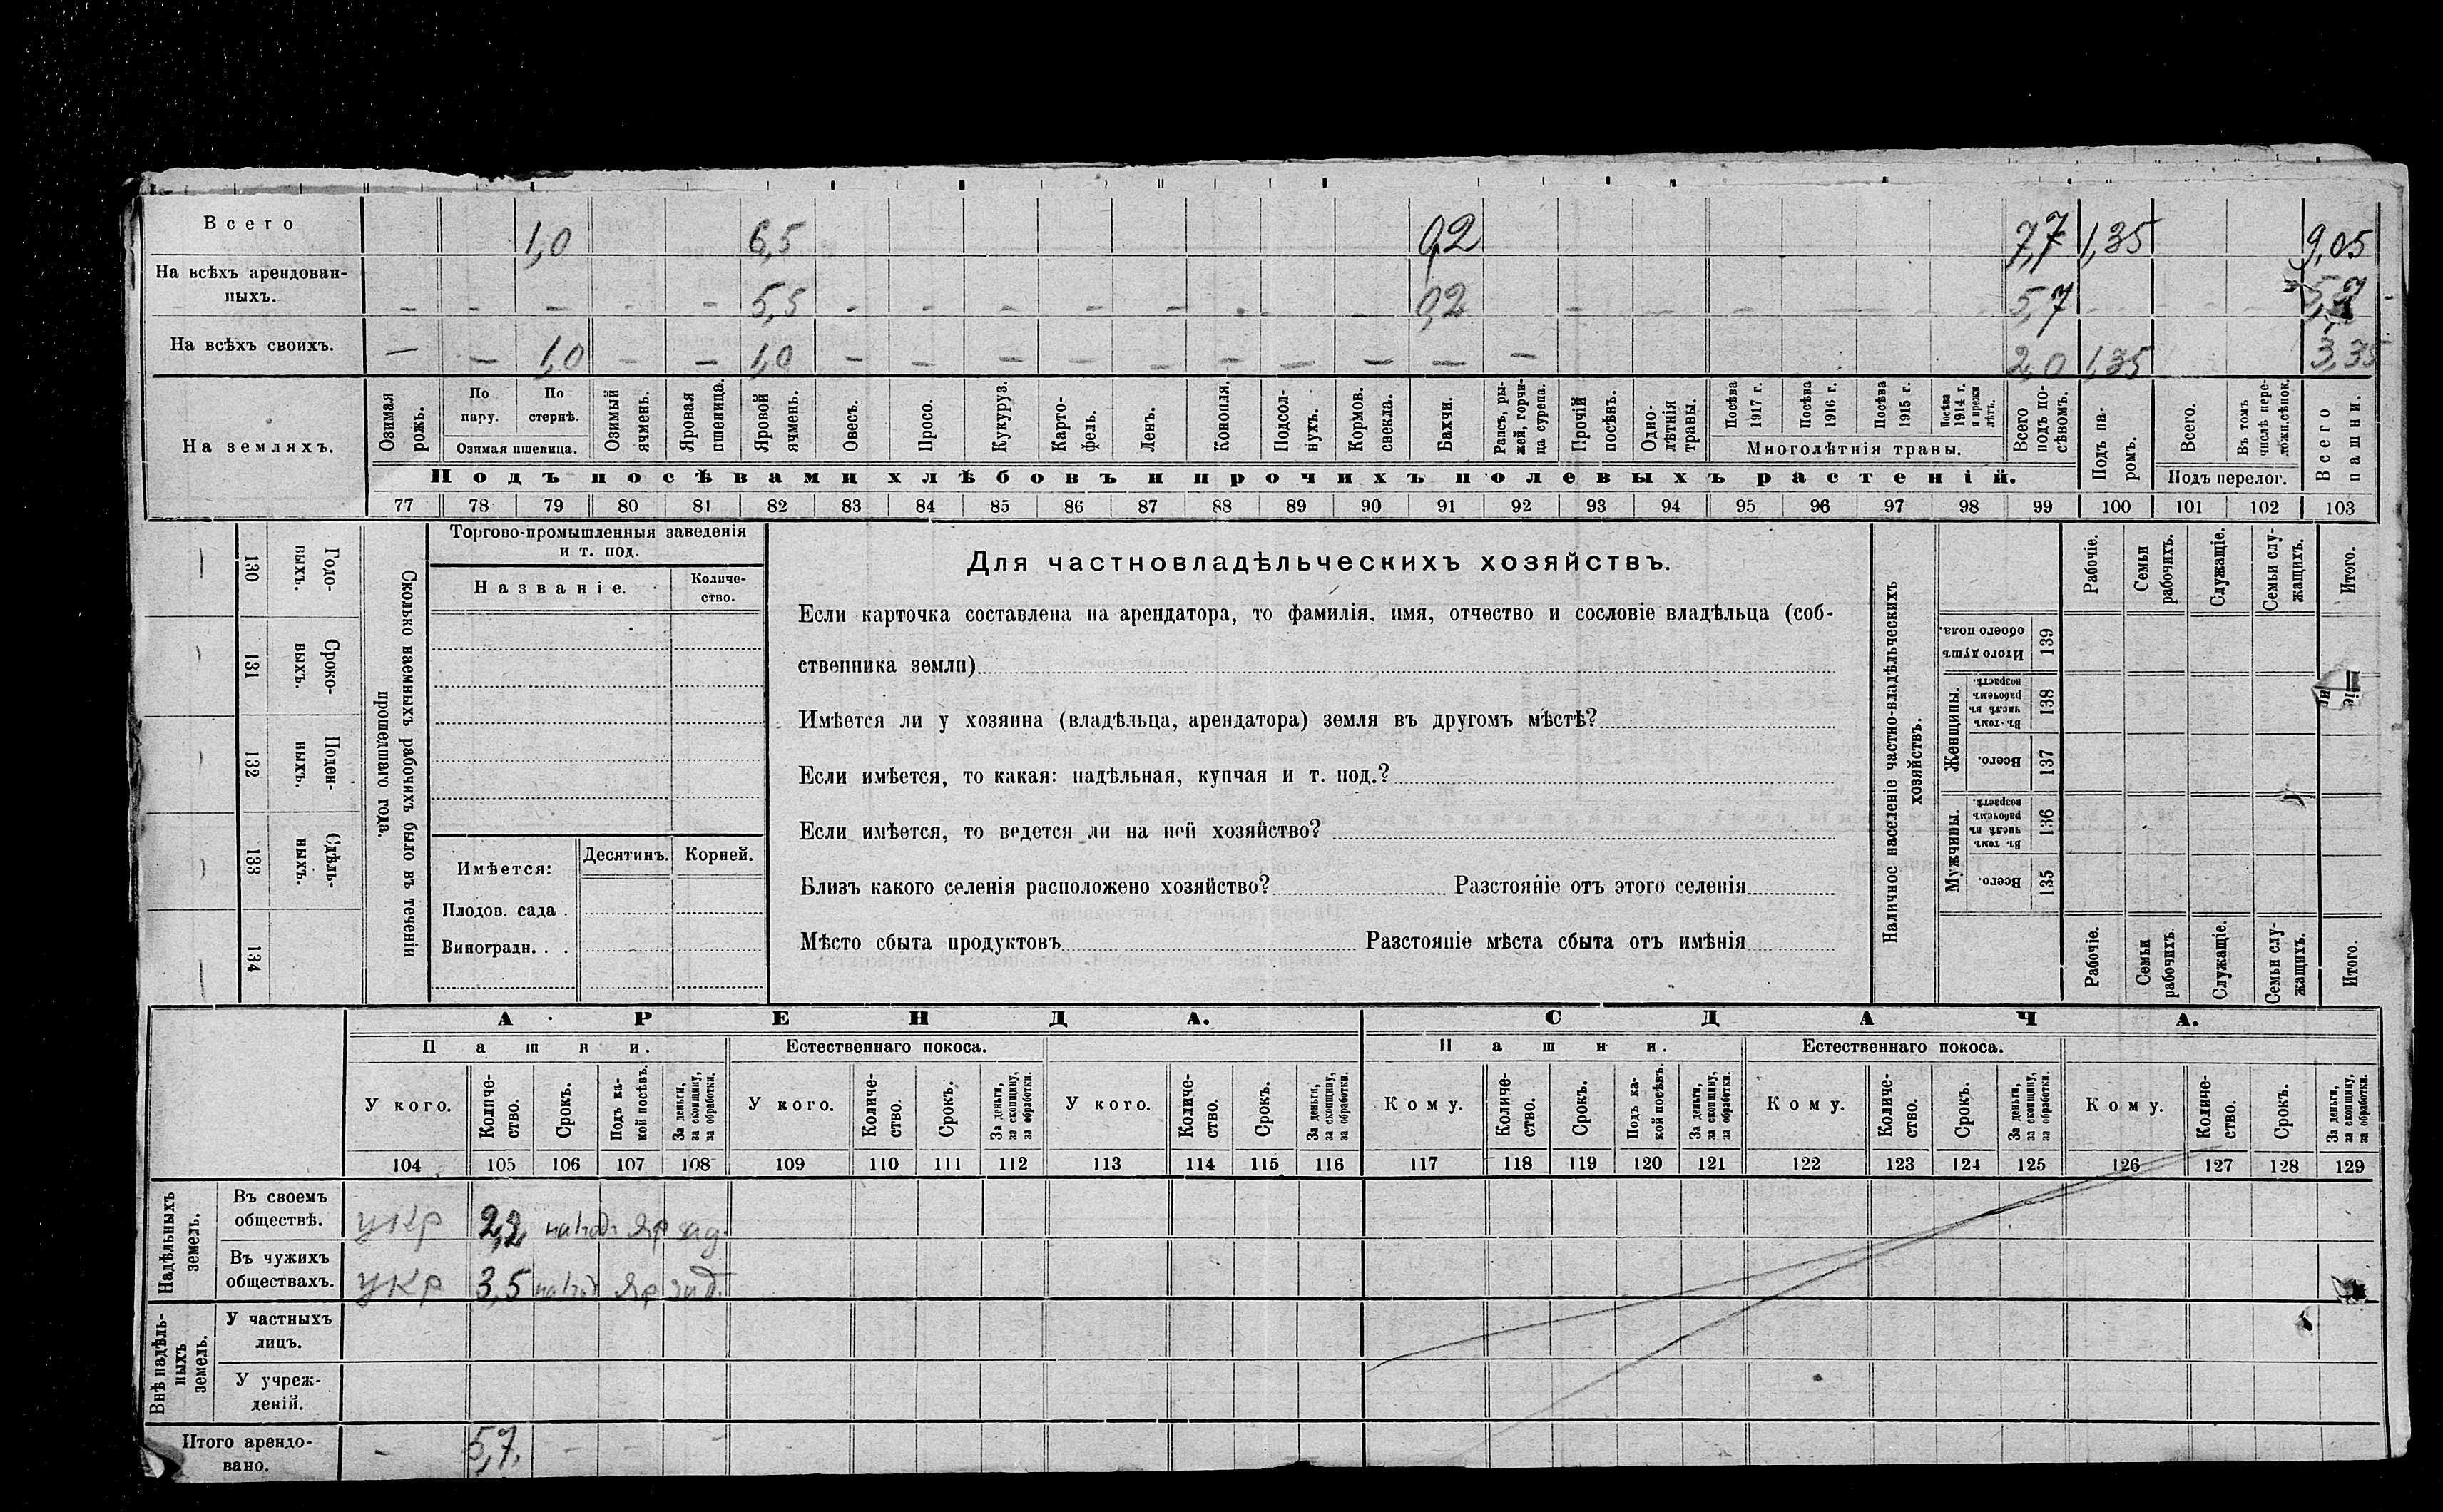 Всего 1,0 6,5 0,2 7,7 1,35 9,05
На всѣхъ арендован-
ныхъ. – – – – – 5,5 – – – – – – – – 0,2 – – – – – – 5,7 – – – 5,7
На всѣхъ своихъ. – – 1,0 – – 1,0 – – – – – – – – – – 2,0 1,35 3,35
На земляхъ.
Озимая рожь.
По пару.
По стернѣ.
Озимая пшеница.
Озимый ячмень.
Яровая пшеница.
Яровой ячмень.
Овесъ.
Просо.
Кукуруз.
Карто-
фель.
Ленъ.
Конопля.
Подсол-
нухъ.
Кормов.
свекла.
Бахчи.
Рапсъ, ры-
жей, горчи-
ца сурепа.
Прочій
посѣвъ.
Одно-
лѣтнія
травы.
Посѣва
1917 г.
Посѣва
1916 г.
Посѣва
1915 г.
Посѣва
1914 г.
и прежн
лѣтъ.
Многолѣтнія травы.
Всего
подъ по-
сѣвомъ.
Подъ па-
ромъ.
Всего.
Въ томъ
числѣ пере-
ложн.сѣнок.
Подъ перелог.
Всего
пашни.
Подъ посѣвами хлѣбовъ и прочихъ полевыхъ растеній.
77 78 79 80 81 82 83 84 85 86 87 88 89 90 91 92 93 94 95 96 97 98 99 100 101 102 103
Годо-
выхъ.
130
Сроко-
выхъ.
131
Поден-
ныхъ.
132
Сдѣль-
ныхъ.
133
134
Сколько наемныхъ рабочихъ было въ теченіи
прошедшаго года.
Торгово-промышленныя заведенія
и т. под.
Названіе.
Количе-
ство.
Имѣется:
Десятинъ.
Корней.
Плодов. сада .
Виноградн. . .
Для частновладѣльческихъ хозяйствъ.
Если карточка составлена на арендатора, то фамилія, имя, отчество и сословіе владѣльца (соб-
ственника земли)
Имѣется ли у хозяина (владѣльца, арендатора) земля въ другомъ мѣстѣ?
Если имѣется, то какая: надѣльная, купчая и т. под.?
Если имѣется, то ведется ли на ней хозяйство?
Близъ какого селенія расположено хозяйство? Разстояніе отъ этого селенія
Мѣсто сбыта продуктовъ Разстояніе мѣста сбыта отъ имѣнія
Наличное населеніе частно-владѣльческихъ
хозяйствъ.
Рабочіе.
Семьи
рабочихъ.
Служащіе.
Семьи слу-
жащихъ.
Итого.
Итого душъ
обоего пола.
139
Женщины.
Въ томъ
числѣ въ
рабочемъ
возрастѣ.
138
Всего.
137
Мужчины.
Въ томъ
числѣ въ
рабочемъ
возрастѣ.
136
Всего.
135
Рабочіе.
Семьи
рабочихъ.
Служащіе.
Семьи слу-
жащихъ.
Итого.
АРЕНДА. СДАЧА.
Пашни. Естественнаго покоса. Пашни. Естественнаго покоса.
У кого.
Количе-
ство.
Срокъ.
Подъ ка-
кой посѣвъ.
За деньги,
за скопщину,
за обработки.
У кого.
Количе-
ство.
Срокъ.
За деньги,
за скопщину,
за обработки.
У кого.
Количе-
ство.
Срокъ.
За деньги,
за скопщину,
за обработки.
Кому.
Количе-
ство.
Срокъ.
Подъ ка-
кой посѣвъ.
За деньги,
за скопщину,
за обработки.
Кому.
Количе-
ство.
Срокъ.
За деньги,
за скопщину,
за обработки.
Кому.
Количе-
ство.
Срокъ.
За деньги,
за скопщину,
за обработки.
104 105 106 107 108 109 110 111 112 113 114 115 116 117 118 119 120 121 122 123 124 125 126 127 128 129
Надѣльныхъ
земель.
Въ своемъ
обществѣ. укр 2,2 Яр
Въ чужихъ
обществахъ. укр 3,5 Яр
Внѣ надѣль-
ныхъ
земель.
У частныхъ
лицъ.
У учреж-
деній.
Итого арендо-
вано. – 5,7. – – –